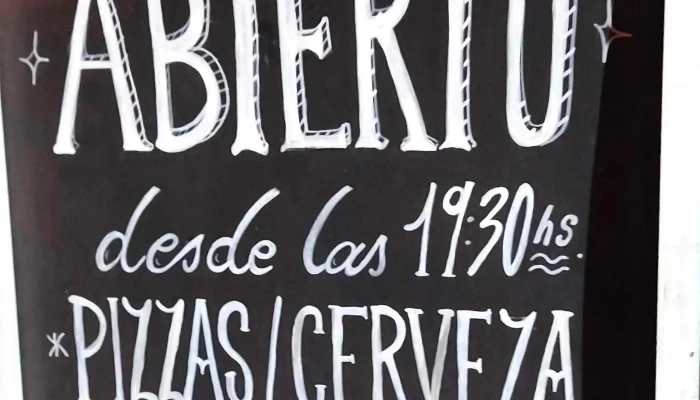 ABIERTO
desde las 19:30 hs.
PIZZAS/CERVEZA